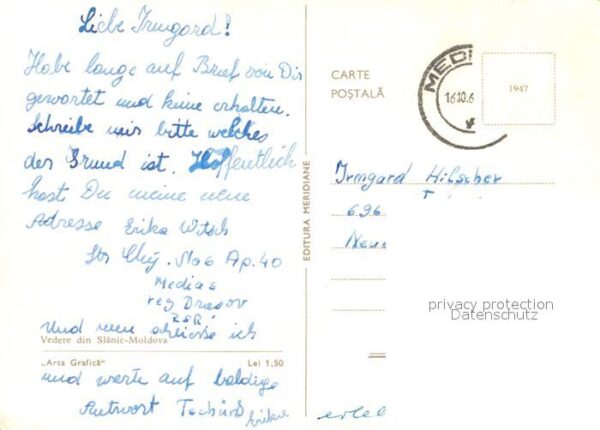 Liebe Irmgard!
Habe lange auf Brief von Dir
gewartet und keine erhalten.
Schreibe mir bitte welches
der Grund ist. Hoffentlich
hast Du meine neue
Adresse Erika
Str Cluj. No 6 Ap. 40
Medias
reg Brasov
RSR
Und nun schliesse ich
Vedere din Slănic-Moldova
„Arta Grafică" Lei 1,50
und warte auf baldige
Antwort Tschüß Erika
EDITURA MERIDIANE
CARTE
POȘTALĂ
MEDI
16.10.6
1947
Irmgard
696
privacy protection
Datenschutz